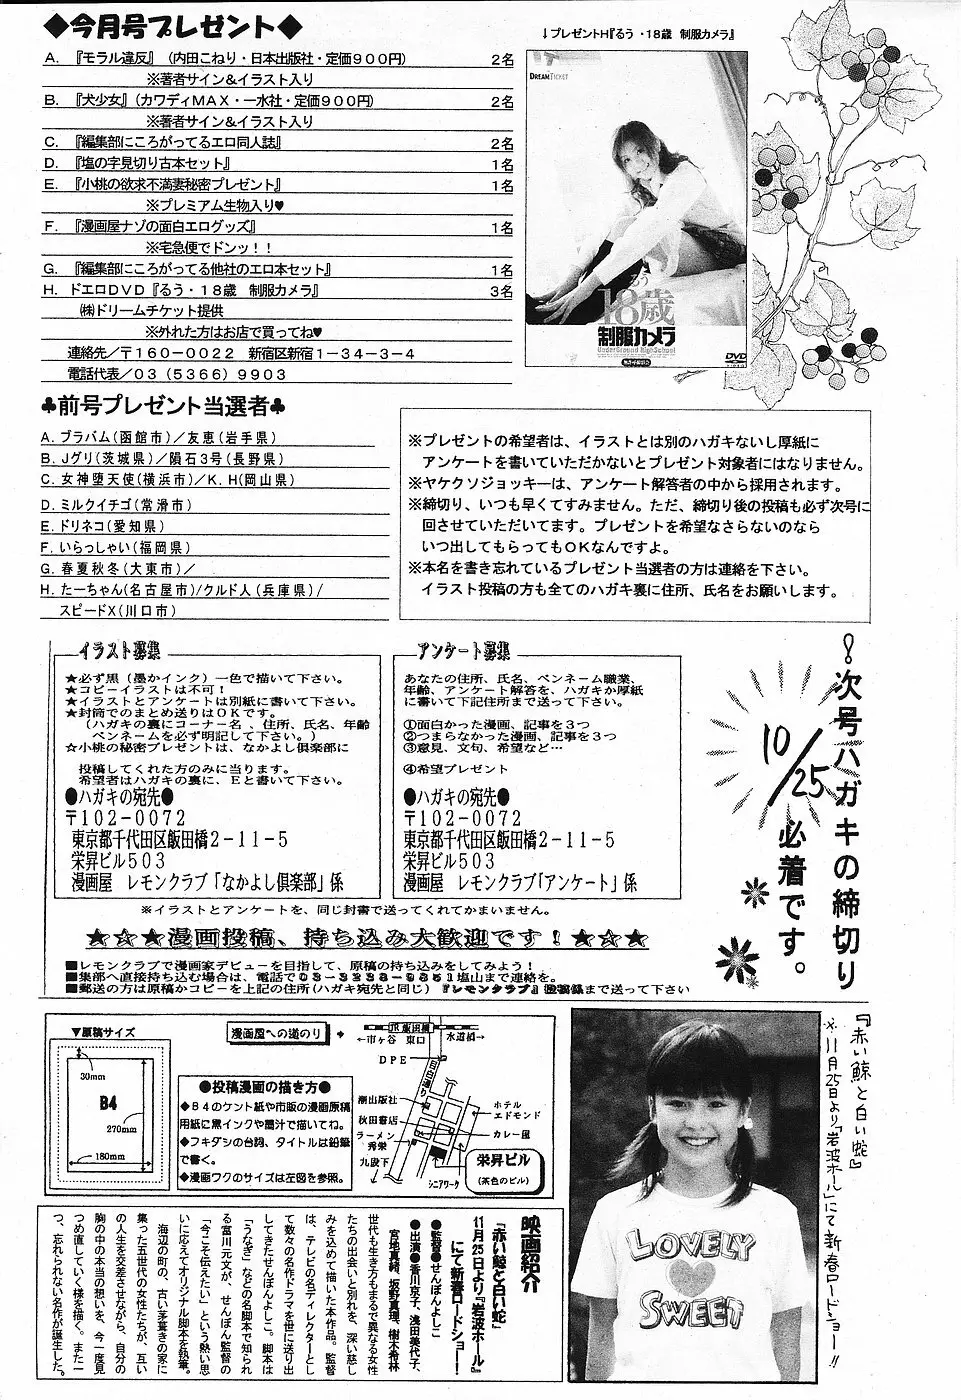 ◆今月号プレゼント◆
A. 『モラル違反』（内田こねり・日本出版社・定価９００円） ２名
※著者サイン＆イラスト入り
B. 『犬少女』（カワディMAX・一水社・定価９００円） ２名
※著者サイン＆イラスト入り
C. 『編集部にころがってるエロ同人誌』 ２名
D. 『塩の字見切り古本セット』 １名
E. 『小桃の欲求不満妻秘密プレゼント』 １名
※プレミアム生物入り♥
F. 『漫画屋ナゾの面白エログッズ』 １名
※宅急便でドンッ！！
G. 『編集部にころがってる他社のエロ本セット』 １名
H. ドエロDVD『るう・１８歳 制服カメラ』 ３名
㈱ドリームチケット提供
※外れた方はお店で買ってね♥
連絡先／〒１６０－００２２ 新宿区新宿１－３４－３－４
電話代表／０３（５３６６）９９０３
↓プレゼントH『るう・18歳 制服カメラ』
DREAM TICKET
るう
18歳
制服カメラ
UnderGround HighSchool
DVD
♣前号プレゼント当選者♣
A. ブラバム(函館市)／友恵(岩手県)
B. Jグリ(茨城県)／隕石3号(長野県)
C. 女神堕天使(横浜市)／K. H(岡山県)
D. ミルクイチゴ(常滑市)
E. ドリネコ(愛知県)
F. いらっしゃい(福岡県)
G. 春夏秋冬(大東市)／
H. たーちゃん(名古屋市)/クルド人(兵庫県)/
スピードX(川口市)
※プレゼントの希望者は、イラストとは別のハガキないし厚紙に
アンケートを書いていただかないとプレゼント対象者にはなりません。
※ヤケクソジョッキーは、アンケート解答者の中から採用されます。
※締切り、いつも早くてすみません。ただ、締切り後の投稿も必ず次号に
回させていただいてます。プレゼントを希望なさらないのなら
いつ出してもらってもOKなんですよ。
※本名を書き忘れているプレゼント当選者の方は連絡を下さい。
イラスト投稿の方も全てのハガキ裏に住所、氏名をお願いします。
イラスト募集
★必ず黒（墨かインク）一色で描いて下さい。
★コピーイラストは不可！
★イラストとアンケートは別紙に書いて下さい。
★封筒でのまとめ送りはOKです。
（ハガキの裏にコーナー名、住所、氏名、年齢
ペンネームを必ず明記して下さい。）
☆小桃の秘密プレゼントは、なかよし倶楽部に
投稿してくれた方のみに当ります。
希望者はハガキの裏に、Eと書いて下さい。
●ハガキの宛先●
〒１０２－００７２
東京都千代田区飯田橋２－１１－５
栄昇ビル５０３
漫画屋 レモンクラブ「なかよし倶楽部」係
アンケート募集
あなたの住所、氏名、ペンネーム職業、
年齢、アンケート解答を、ハガキか厚紙
に書いて下記住所まで送って下さい。
①面白かった漫画、記事を３つ
②つまらなかった漫画、記事を３つ
③意見、文句、希望など…
④希望プレゼント
●ハガキの宛先●
〒１０２－００７２
東京都千代田区飯田橋２－１１－５
栄昇ビル５０３
漫画屋 レモンクラブ「アンケート」係
！次号ハガキの締切り
10/25
必着です。
※イラストとアンケートを、同じ封書で送ってくれてかまいません。
★☆★漫画投稿、持ち込み大歓迎です！★☆★
■レモンクラブで漫画家デビューを目指して、原稿の持ち込みをしてみよう！
■集部へ直接持ち込む場合は、電話で 塩山まで連絡を。
■郵送の方は原稿かコピーを上記の住所(ハガキ宛先と同じ) 『レモンクラブ』 係まで送って下さい
▼原稿サイズ
30mm
B4
270mm
180mm
漫画屋への道のり
●投稿漫画の描き方●
◆Ｂ４のケント紙や市販の漫画原稿
用紙に黒インクや墨汁で描いてね。
◆フキダシの台詞、タイトルは鉛筆
で書く。
◆漫画ワクのサイズは左図を参照。
JR飯田橋
←市ヶ谷 東口
水道橋→
DPE
目白通り
潮出版社
秋田書店
ラーメン
秀栄
九段下
ホテル
エドモンド
カレー屋
シニアワーク
栄昇ビル
(茶色のビル)
『赤い鯨と白い蛇』
※11月25日より『岩波ホール』にて新春ロードショー!!
LOVELY
SWEET
映画紹介
『赤い鯨と白い蛇』
11月25日より『岩波ホール』
にて新春ロードショー！
●監督●せんぼんよしこ
●出演●香川京子、浅田美代子、
宮地真緒、坂野真理、樹木希林
世代も生き方もまるで異なる女性
たちの出会いと別れを、深い慈し
みを込めて描いた本作品。監督
は、テレビの名ディレクターとし
て数々の名作ドラマを世に送り出
してきたせんぼんよしこ。脚本は
「うなぎ」などの名脚本で知られ
る冨川元文が、せんぼん監督の
「今こそ伝えたい」という熱い思
いに応えてオリジナル脚本を執筆。
海辺の町の、古い茅葺きの家に
集った五世代の女性たちが、互い
の人生を交差させながら、自分の
胸の中の本当の想いを、今一度見
つめ直していく様を描く。また一
つ、忘れられない名作が誕生した。